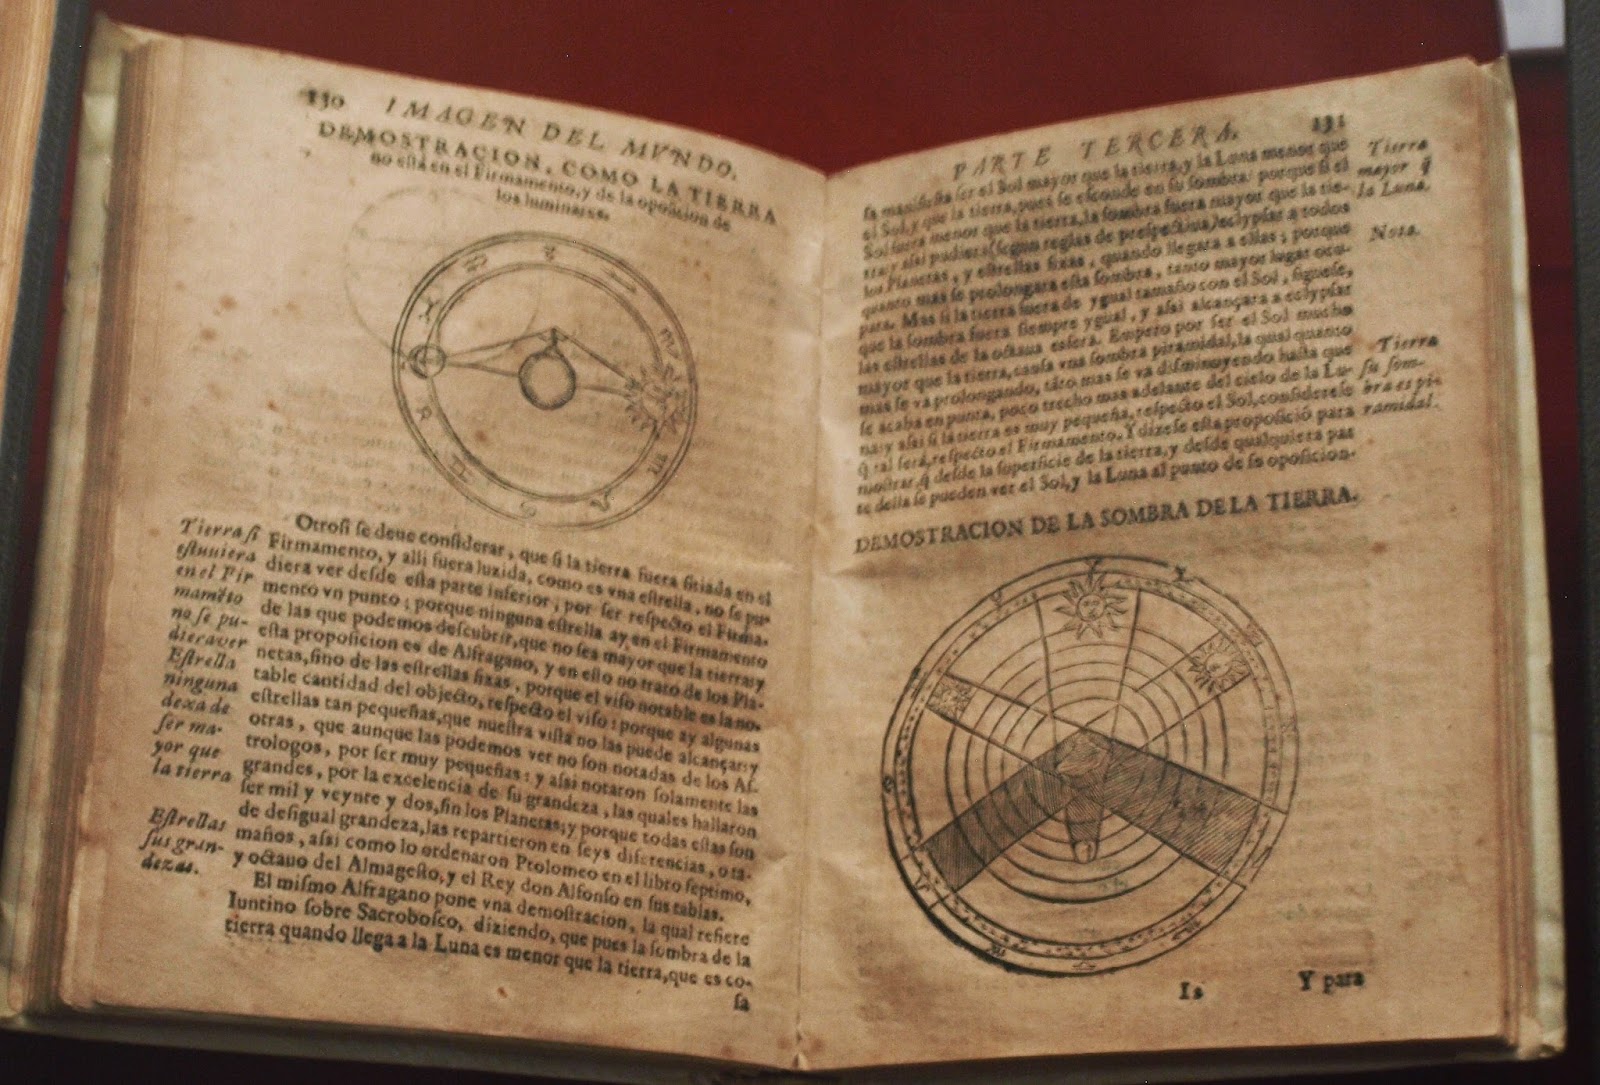 130 IMAGEN DEL MVNDO.
DEMOSTRACION, COMO LA TIERRA
no eſtà en el Firmamento, y de la opoſicion de
los luminares.
Otroſi ſe deue conſiderar, que ſi la tierra fuera ſitiada en el
Firmamento, y alli fuera luzida, como es vna eſtrella, no ſe pu-
diera ver deſde eſta parte inferior, por ſer reſpecto el Firma-
mento vn punto; porque ninguna eſtrella ay en el Firmamento
de las que podemos deſcubrir, que no ſea mayor que la tierra: y
eſta propoſicion es de Alfragano, y en ello no trato de los Pla-
netas, ſino de las eſtrellas fixas, porque el viſo notable es la no-
table cantidad del objecto, reſpecto el viſo: porque ay algunas
eſtrellas tan pequeñas, que nueſtra viſta no las puede alcançar: y
otras, que aunque las podemos ver no ſon notadas de los Aſ-
trologos, por ſer muy pequeñas: y aſsi notaron ſolamente las
grandes, por la excelencia de ſu grandeza, las quales hallaron
ſer mil y veynte y dos, ſin los Planetas; y porque todas eſtas ſon
de deſigual grandeza, las repartieron en ſeys diferencias, o ta-
maños, aſsi como lo ordenaron Ptolomeo en el libro ſeptimo,
y octauo del Almageſto, y el Rey don Alfonſo en ſus tablas.
El miſmo Alfragano pone vna demoſtracion, la qual refiere
Iuntino ſobre Sacroboſco, diziendo, que pues la ſombra de la
tierra quando llega a la Luna es menor que la tierra, que es co-
ſa
Tierra ſi
eſtuuiera
en el Fir
mamẽto
no ſe pu-
diera ver
Eſtrella
ninguna
dexa de
ſer ma-
yor que
la tierra
Eſtrellas
ſus gran-
dezas.
PARTE TERCERA. 131
ſa manifieſta ſer el Sol mayor que la tierra, y la Luna menor que
el Sol, y que la tierra, pues ſe eſconde en ſu ſombra: porque ſi el
Sol fuera menor que la tierra, la ſombra fuera mayor que la tie-
rra: y aſsi pudiera (ſegun reglas de proſpectiua) eclypſar a todos
los Planetas, y eſtrellas fixas, quando llegara a ellas; porque
quanto mas ſe prolongara eſta ſombra, tanto mayor lugar ocu-
para. Mas ſi la tierra fuera de ygual tamaño con el Sol, ſigueſe,
que la ſombra fuera ſiempre ygual, y aſsi alcançara a eclypſar
las eſtrellas de la octaua esfera. Empero por ſer el Sol mucho
mayor que la tierra, cauſa vna ſombra piramidal, la qual quanto
mas ſe va prolongando, tãto mas ſe va diſminuyendo haſta que
ſe acaba en punta, poco trecho mas adelante del cielo de la Lu-
na: y aſsi ſi la tierra es muy pequeña, reſpecto el Sol, conſidereſe
q̃ tal ſerá, reſpecto el Firmamento. Y dizeſe eſta propoſició para
moſtrar q̃ deſde la ſuperficie de la tierra, y deſde qualquiera par
te della ſe pueden ver el Sol, y la Luna al punto de ſu opoſicion.
Tierra
mayor q̃
la Luna.
Nota.
Tierra
ſu ſom-
bra es pi-
ramidal.
DEMOSTRACION DE LA SOMBRA DE LA TIERRA.
I2 Y para